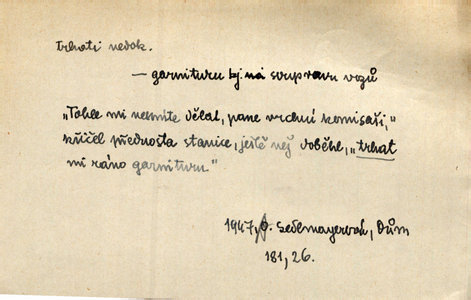 trhati nedok.
— garnituru tj. na soupravu vozů
„Tohle mi nesmíte dělat, pane vrchní komisaři,“
křičel přednosta stanice, ještě než doběhl, „trhat
mi ráno garnituru.“
1947, J. Sedlmayerová, Dům
181, 26.